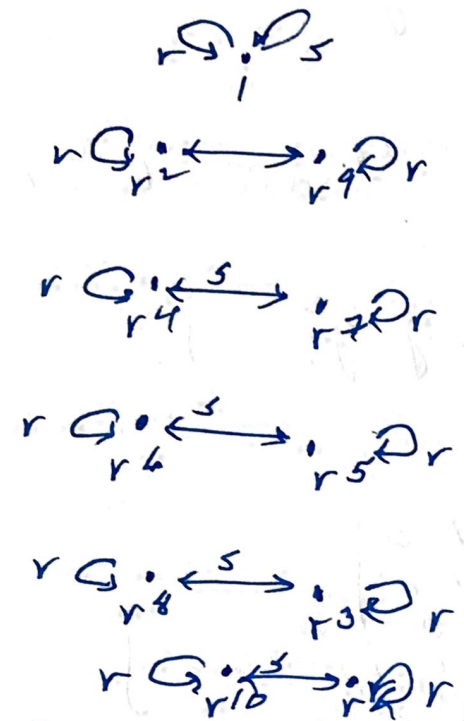 r s
1
r r2 r9 r
r r4 s r7 r
r r6 s r5 r
r r8 s r3 r
r r10 s r r